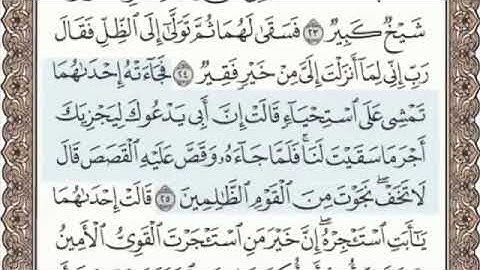 شَيْخٌ كَبِيرٌ ۝٢٣ فَسَقَىٰ لَهُمَا ثُمَّ تَوَلَّىٰٓ إِلَى ٱلظِّلِّ فَقَالَ
رَبِّ إِنِّي لِمَآ أَنزَلْتَ إِلَيَّ مِنْ خَيْرٍ فَقِيرٌ ۝٢٤ فَجَآءَتْهُ إِحْدَىٰهُمَا
تَمْشِي عَلَى ٱسْتِحْيَآءٍ قَالَتْ إِنَّ أَبِي يَدْعُوكَ لِيَجْزِيَكَ
أَجْرَ مَا سَقَيْتَ لَنَا ۚ فَلَمَّا جَآءَهُۥ وَقَصَّ عَلَيْهِ ٱلْقَصَصَ قَالَ
لَا تَخَفْ ۖ نَجَوْتَ مِنَ ٱلْقَوْمِ ٱلظَّٰلِمِينَ ۝٢٥ قَالَتْ إِحْدَىٰهُمَا
يَٰٓأَبَتِ ٱسْتَـْٔجِرْهُ ۖ إِنَّ خَيْرَ مَنِ ٱسْتَـْٔجَرْتَ ٱلْقَوِيُّ ٱلْأَمِينُ